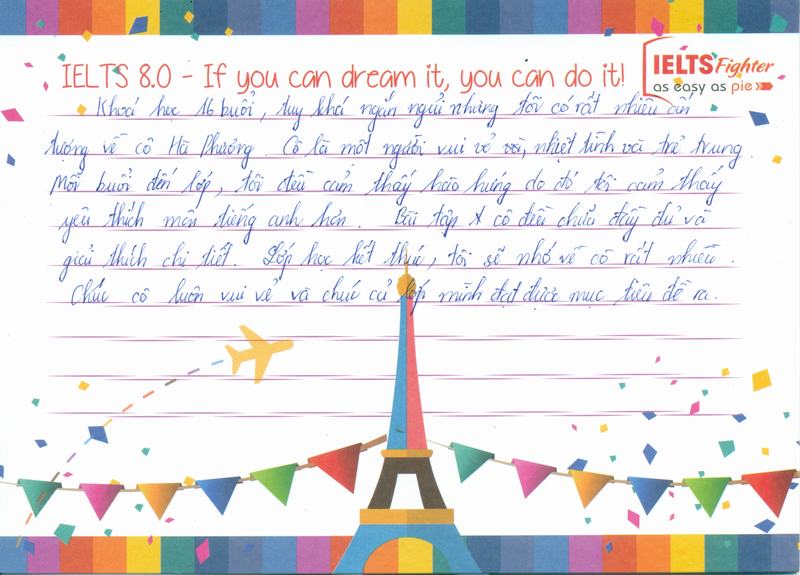 IELTS 8.0 - If you can dream it, you can do it!
IELTS Fighter
as easy as pie
Khoá học 16 buổi, tuy khá ngắn ngủi nhưng tôi có rất nhiều ấn
tượng về cô Hà Phương. Cô là một người vui vẻ, nhiệt tình và trẻ trung.
Mỗi buổi đến lớp, tôi đều cảm thấy hào hứng do đó tôi cảm thấy
yêu thích môn tiếng anh hơn. Bài tập cô đều chữa đầy đủ và
giải thích chi tiết. Lớp học kết thúc, tôi sẽ nhớ về cô rất nhiều.
Chúc cô luôn vui vẻ và chúc cả lớp mình đạt được mục tiêu đề ra.